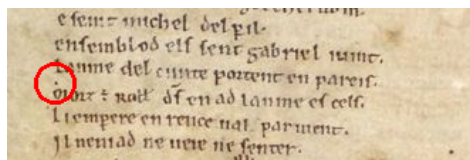 e seint michel del pil.
ensemblod els sent gabriel i uint.
Lanme del cunte portent en pareis.
Morz ē roll. ds en ad lanme es cels.
Li emperere en reuce
Il nen i ad ne ueie ne senter.